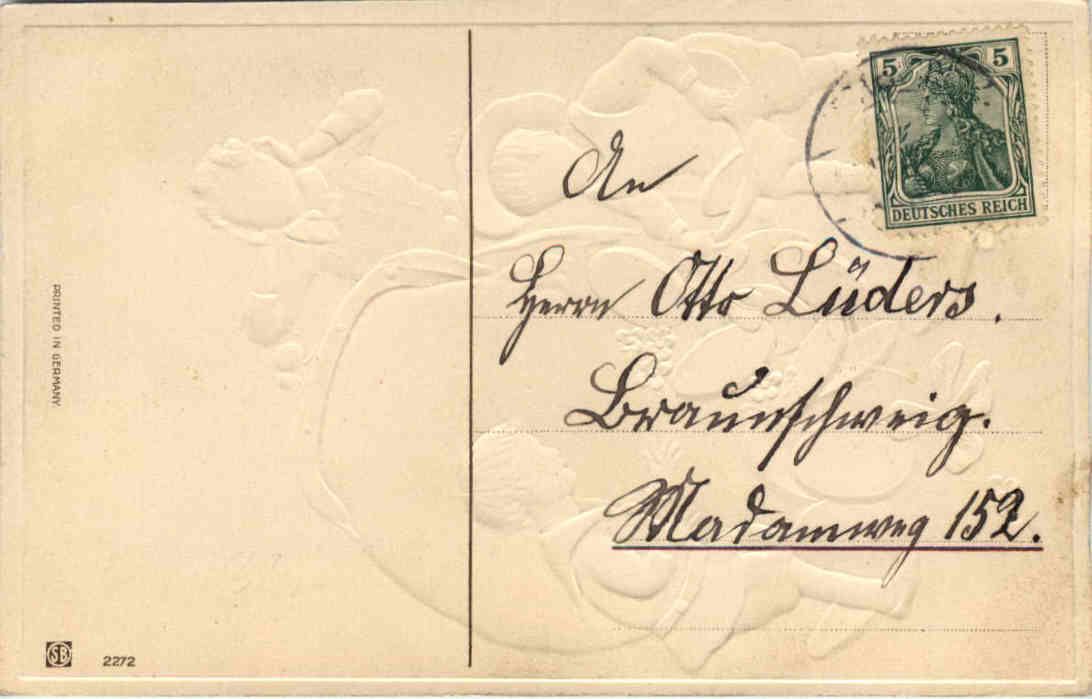 5 5
DEUTSCHES REICH
An
Herrn Otto Lüders.
Braunschweig.
Madamweg 152.
PRINTED IN GERMANY
SB 2272